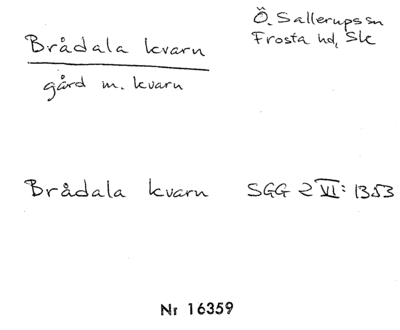 Ö. Sallerupssn
Frosta hd, Sk
Brådala kvarn
gård m. kvarn
Brådala kvarn SGG 2 VI: 1353
Nr 16359